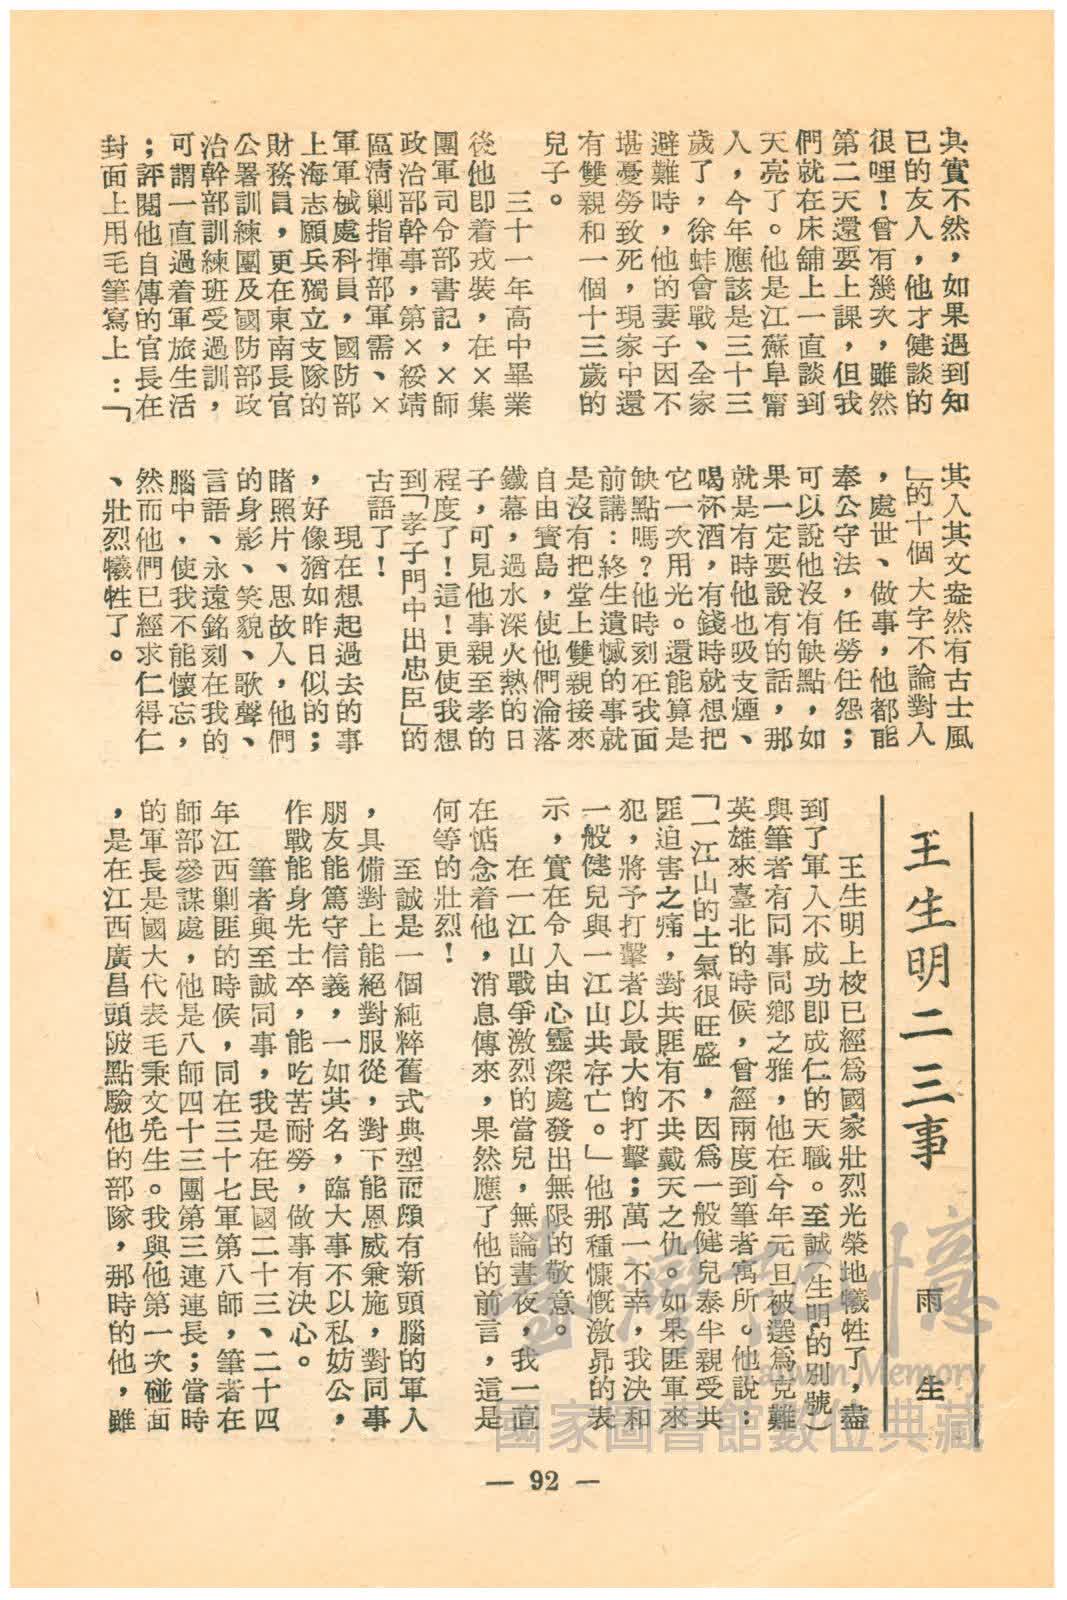 其實不然，如果遇到知
已的友人，他才健談的
很哩！曾有幾次，雖然
第二天還要上課，但我
們就在床舖上一直談到
天亮了。他是江蘇阜甯
人，今年應該是三十三
歲了，徐蚌會戰、全家
避難時，他的妻子因不
堪憂勞致死，現家中還
有雙親和一個十三歲的
兒子。
三十一年高中畢業
後他卽着戎裝，在×集
團軍司令部書記，×師
政治部幹事，第×綏靖
區清剿指揮部軍需、×
軍軍械處科員，國防部
上海志願兵獨立支隊的
財務員，更在東南長官
公署訓練團及國防部政
治幹部訓練班受過訓，
可謂一直過着軍旅生活
；評閱他自傳的官長在
封面上用毛筆寫上：「
其人其文盎然有古士風
」的十個大字不論對人
，處世、做事，他都能
奉公守法，任勞任怨；
可以說他沒有缺點，如
果一定要說有的話，那
就是有時他也吸支煙、
喝杯酒，有錢時就想把
它一次用光。還能算是
缺點嗎？他時刻在我面
前講：終生遺憾的事就
是沒有把堂上雙親接來
自由寶島，使他們淪落
鐵幕，過水深火熱的日
子，可見他事親至孝的
程度了！這！更使我想
到「孝子門中出忠臣」的
古語了！
現在想起過去的事
，好像猶如昨日似的；
睹照片、思故人，他們
的身影、笑貌、歌聲、
言語、永遠銘刻在我的
腦中，使我不能懷忘，
然而他們已經求仁得仁
、壯烈犧牲了。
王生明二三事
雨生
王生明上校已經爲國家壯烈光榮地犧牲了，盡
到了軍人不成功卽成仁的天職。至誠（生明的別號）
與筆者有同事同鄉之雅，他在今年元旦被選爲克難
英雄來臺北的時候，曾經兩度到筆者寓所。他說：
「一江山的士氣很旺盛，因爲一般健兒泰半親受共
匪迫害之痛，對共匪有不共戴天之仇。如果匪軍來
犯，將予打擊者以最大的打擊；萬一不幸，我決和
一般健兒與一江山共存亡。」他那種慷慨激昂的表
示，實在令人由心靈深處發出無限的敬意。
在一江山戰爭激烈的當兒，無論晝夜，我一直
在惦念着他，消息傳來，果然應了他的前言，這是
何等的壯烈！
至誠是一個純粹舊式典型而頗有新頭腦的軍人
，具備對上能絕對服從，對下能恩威兼施，對同事
朋友能篤守信義，一如其名，臨大事不以私妨公，
作戰能身先士卒，能吃苦耐勞，做事有決心。
筆者與至誠同事，我是在民國二十三、二十四
年江西剿匪的時候，同在三十七軍第八師，筆者在
師部參謀處，他是八師四十三團第三連連長；當時
的軍長是國大代表毛秉文先生。我與他第一次碰面
，是在江西廣昌頭陂點驗他的部隊，那時的他，雖
— 92 —
臺灣記憶
Taiwan Memory
國家圖書館數位典藏